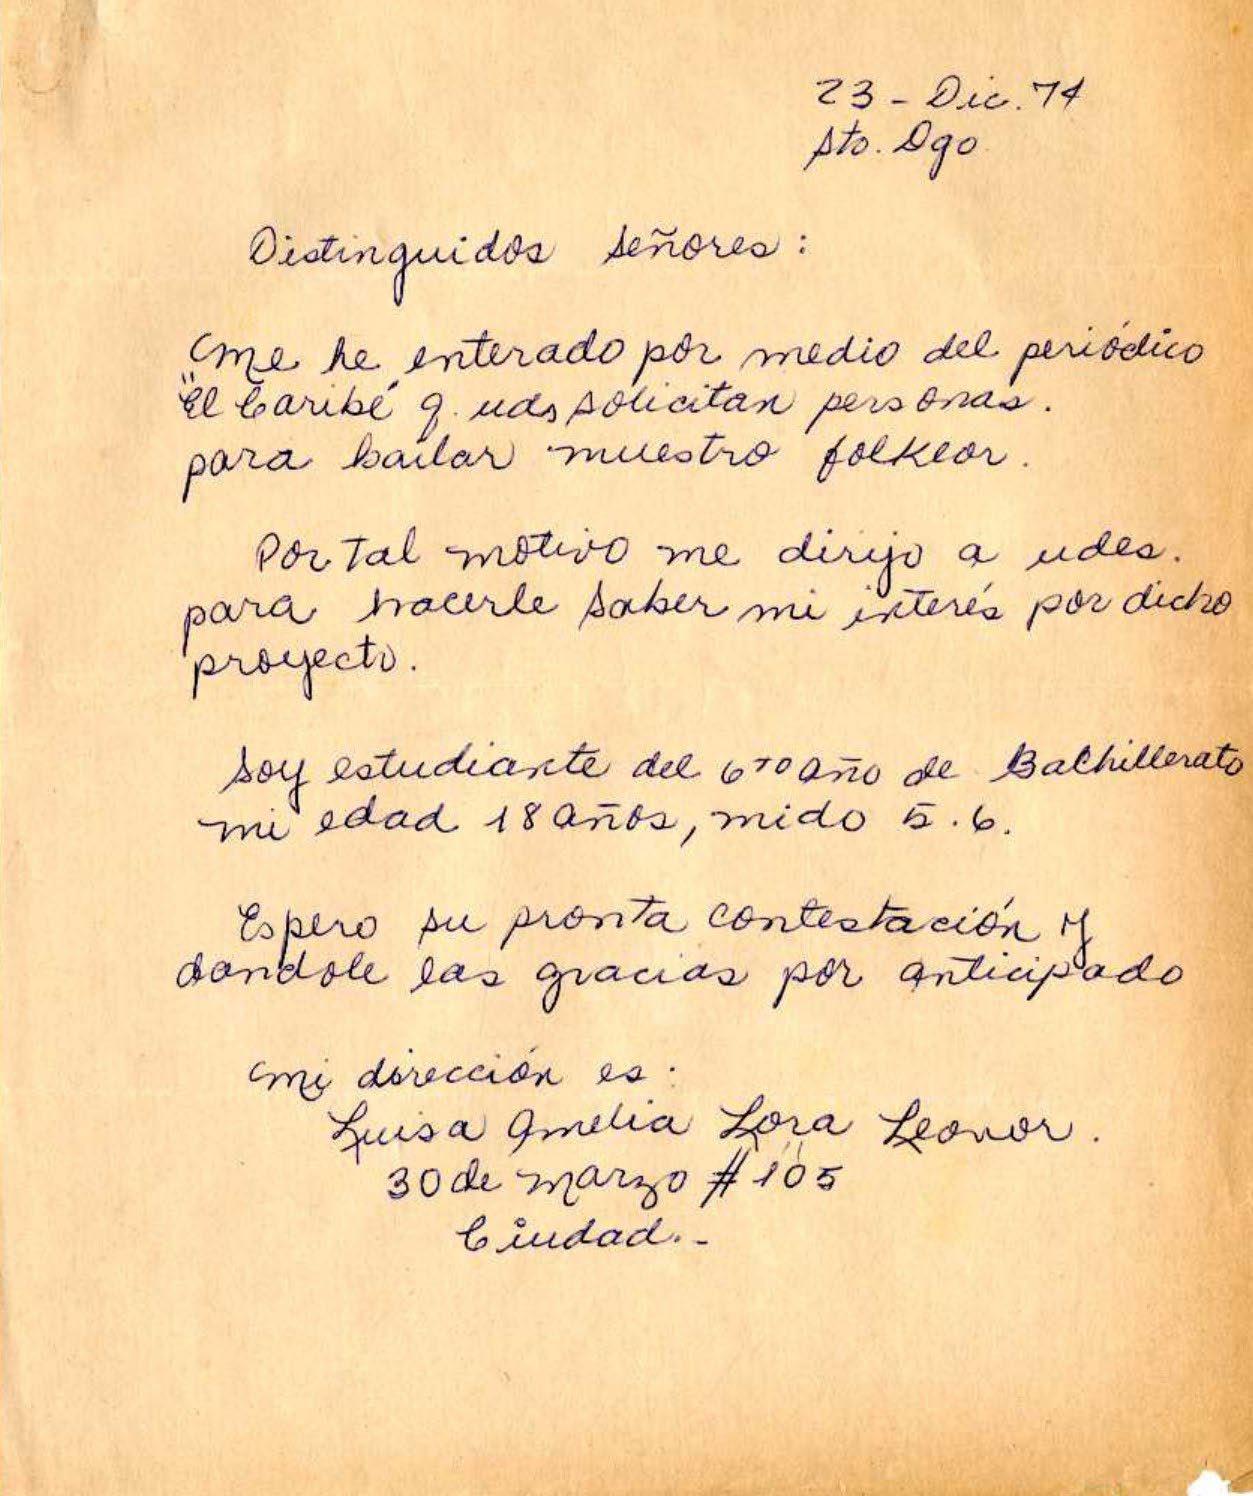 23 - Dic. 74
Sto. Dgo
Distinguidos Señores :
Me he enterado por medio del periódico
"El Caribé" q. uds solicitan personas.
para bailar nuestro folklor.
Por tal motivo me dirijo a udes.
para hacerle saber mi interés por dicho
proyecto.
Soy estudiante del 6to año de Bachillerato
mi edad 18 años, mido 5.6.
Espero su pronta contestación y
dandole las gracias por anticipado
Mi dirección es:
Luisa Amelia Lora Leonor.
30 de Marzo # 105
Ciudad.-